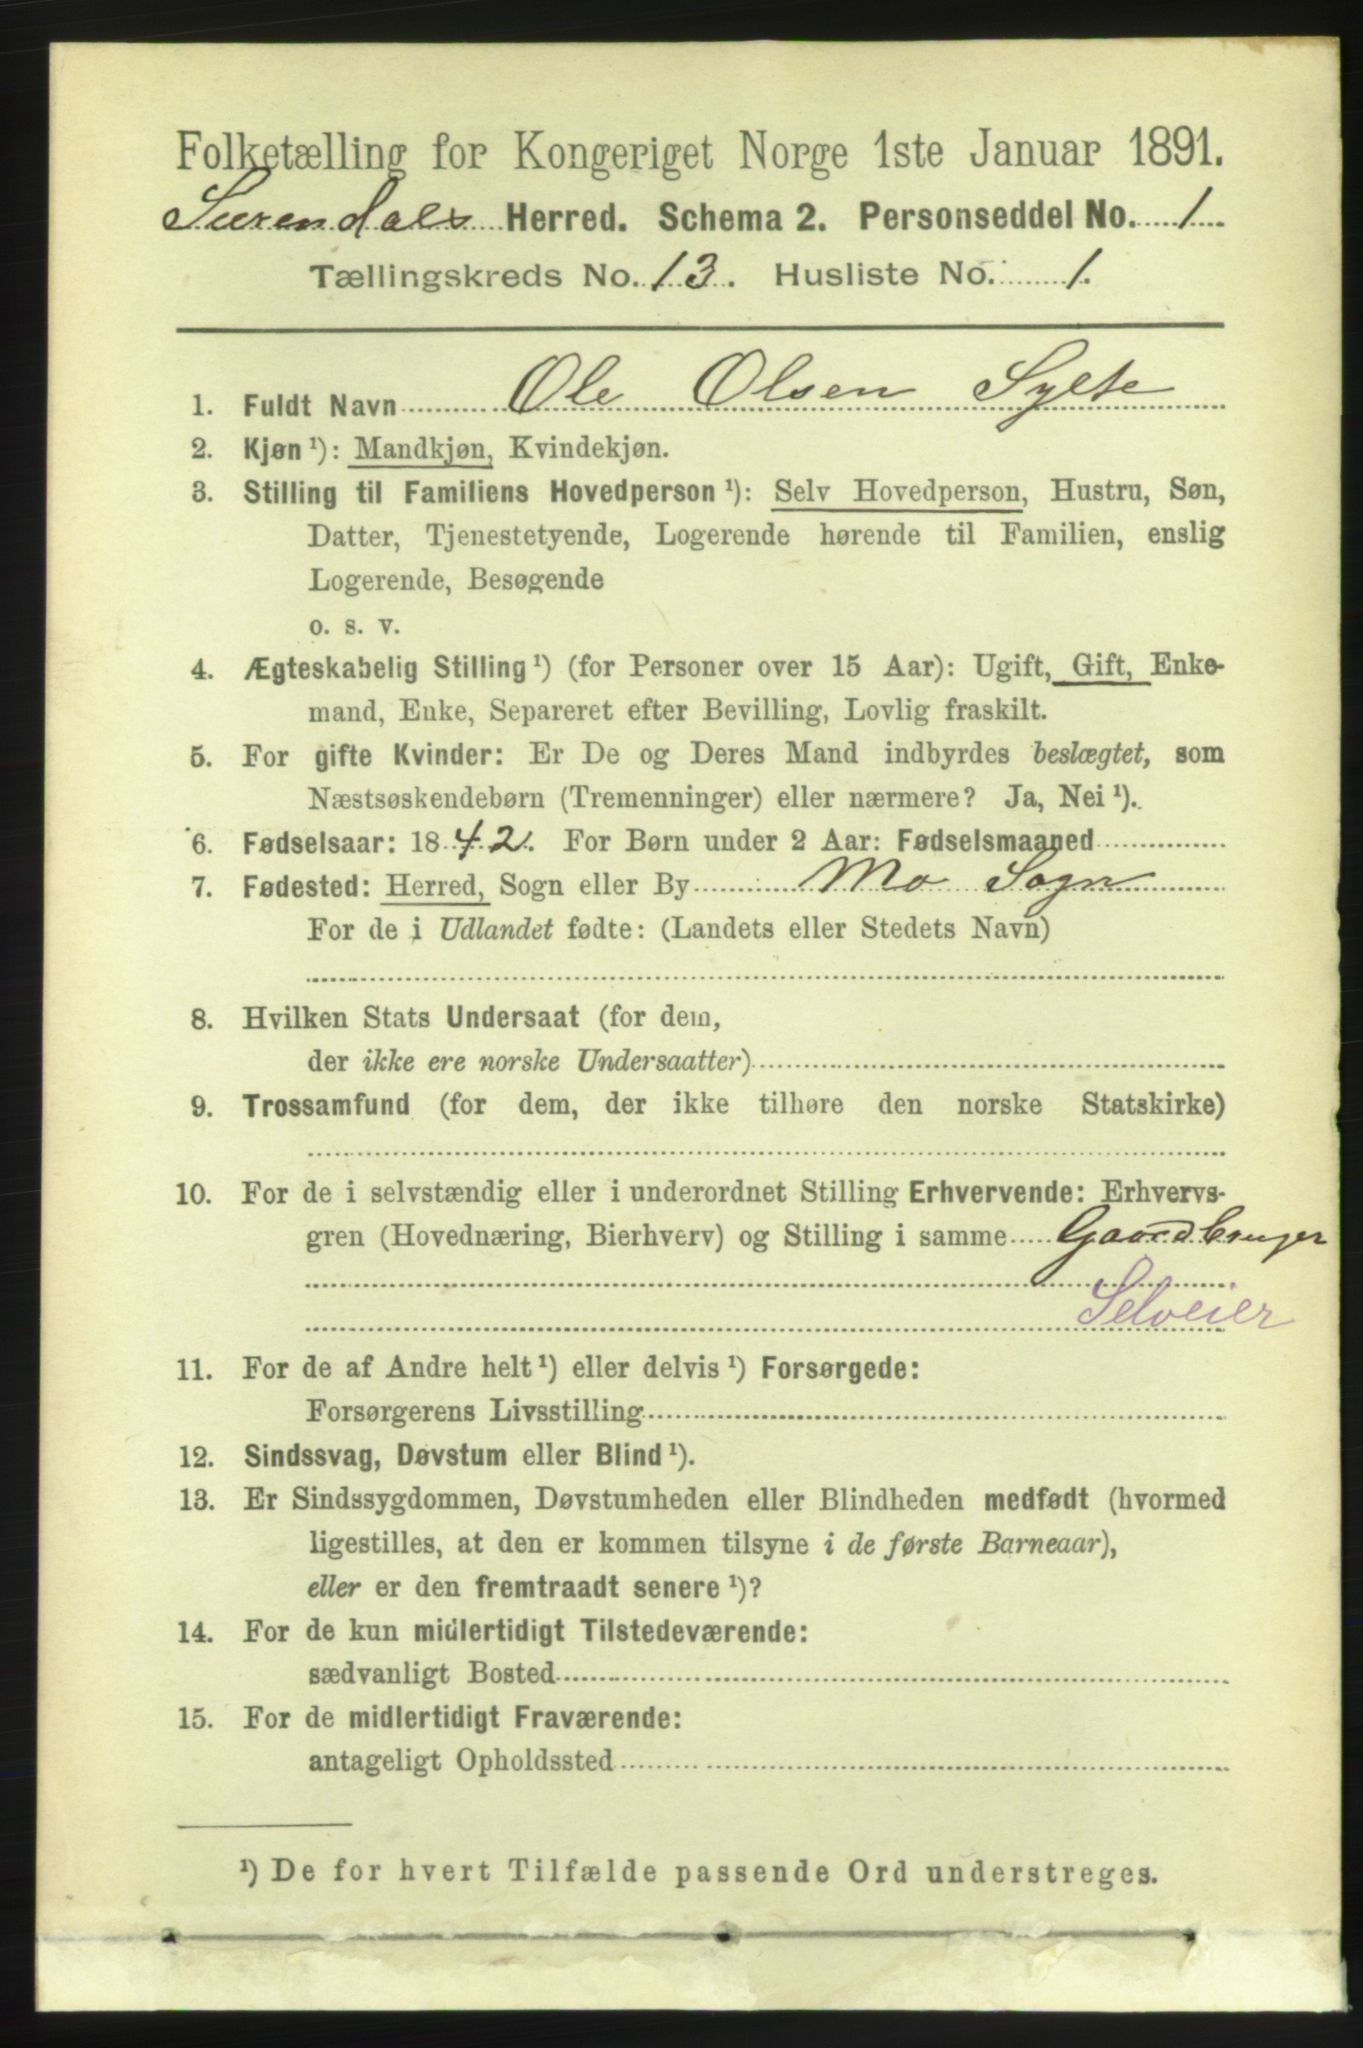 Folketælling for Kongeriget Norge 1ste Januar 1891.
Surendals Herred. Schema 2. Personseddel No. 1
Tællingskreds No. 13. Husliste No. 1.
1. Fuldt Navn Ole Olsen Sylte
2. Kjøn ¹): Mandkjøn, Kvindekjøn.
3. Stilling til Familiens Hovedperson ¹): Selv Hovedperson, Hustru, Søn,
Datter, Tjenestetyende, Logerende hørende til Familien, enslig
Logerende, Besøgende
o. s. v.
4. Ægteskabelig Stilling ¹) (for Personer over 15 Aar): Ugift, Gift, Enke-
mand, Enke, Separeret efter Bevilling, Lovlig fraskilt.
5. For gifte Kvinder: Er De og Deres Mand indbyrdes beslægtet, som
Næstsøskendebørn (Tremenninger) eller nærmere? Ja, Nei ¹).
6. Fødselsaar: 1842. For Børn under 2 Aar: Fødselsmaaned
7. Fødested: Herred, Sogn eller By Mo Sogn
For de i Udlandet fødte: (Landets eller Stedets Navn)
8. Hvilken Stats Undersaat (for dem,
der ikke ere norske Undersaatter)
9. Trossamfund (for dem, der ikke tilhøre den norske Statskirke)
10. For de i selvstændig eller i underordnet Stilling Erhvervende: Erhvervs-
gren (Hovednæring, Bierhverv) og Stilling i samme Gaardbruger
Selveier
11. For de af Andre helt ¹) eller delvis ¹) Forsørgede:
Forsørgerens Livsstilling
12. Sindssvag, Døvstum eller Blind ¹).
13. Er Sindssygdommen, Døvstumheden eller Blindheden medfødt (hvormed
ligestilles, at den er kommen tilsyne i de første Barneaar),
eller er den fremtraadt senere ¹)?
14. For de kun midlertidigt Tilstedeværende:
sædvanligt Bosted
15. For de midlertidigt Fraværende:
antageligt Opholdssted
¹) De for hvert Tilfælde passende Ord understreges.